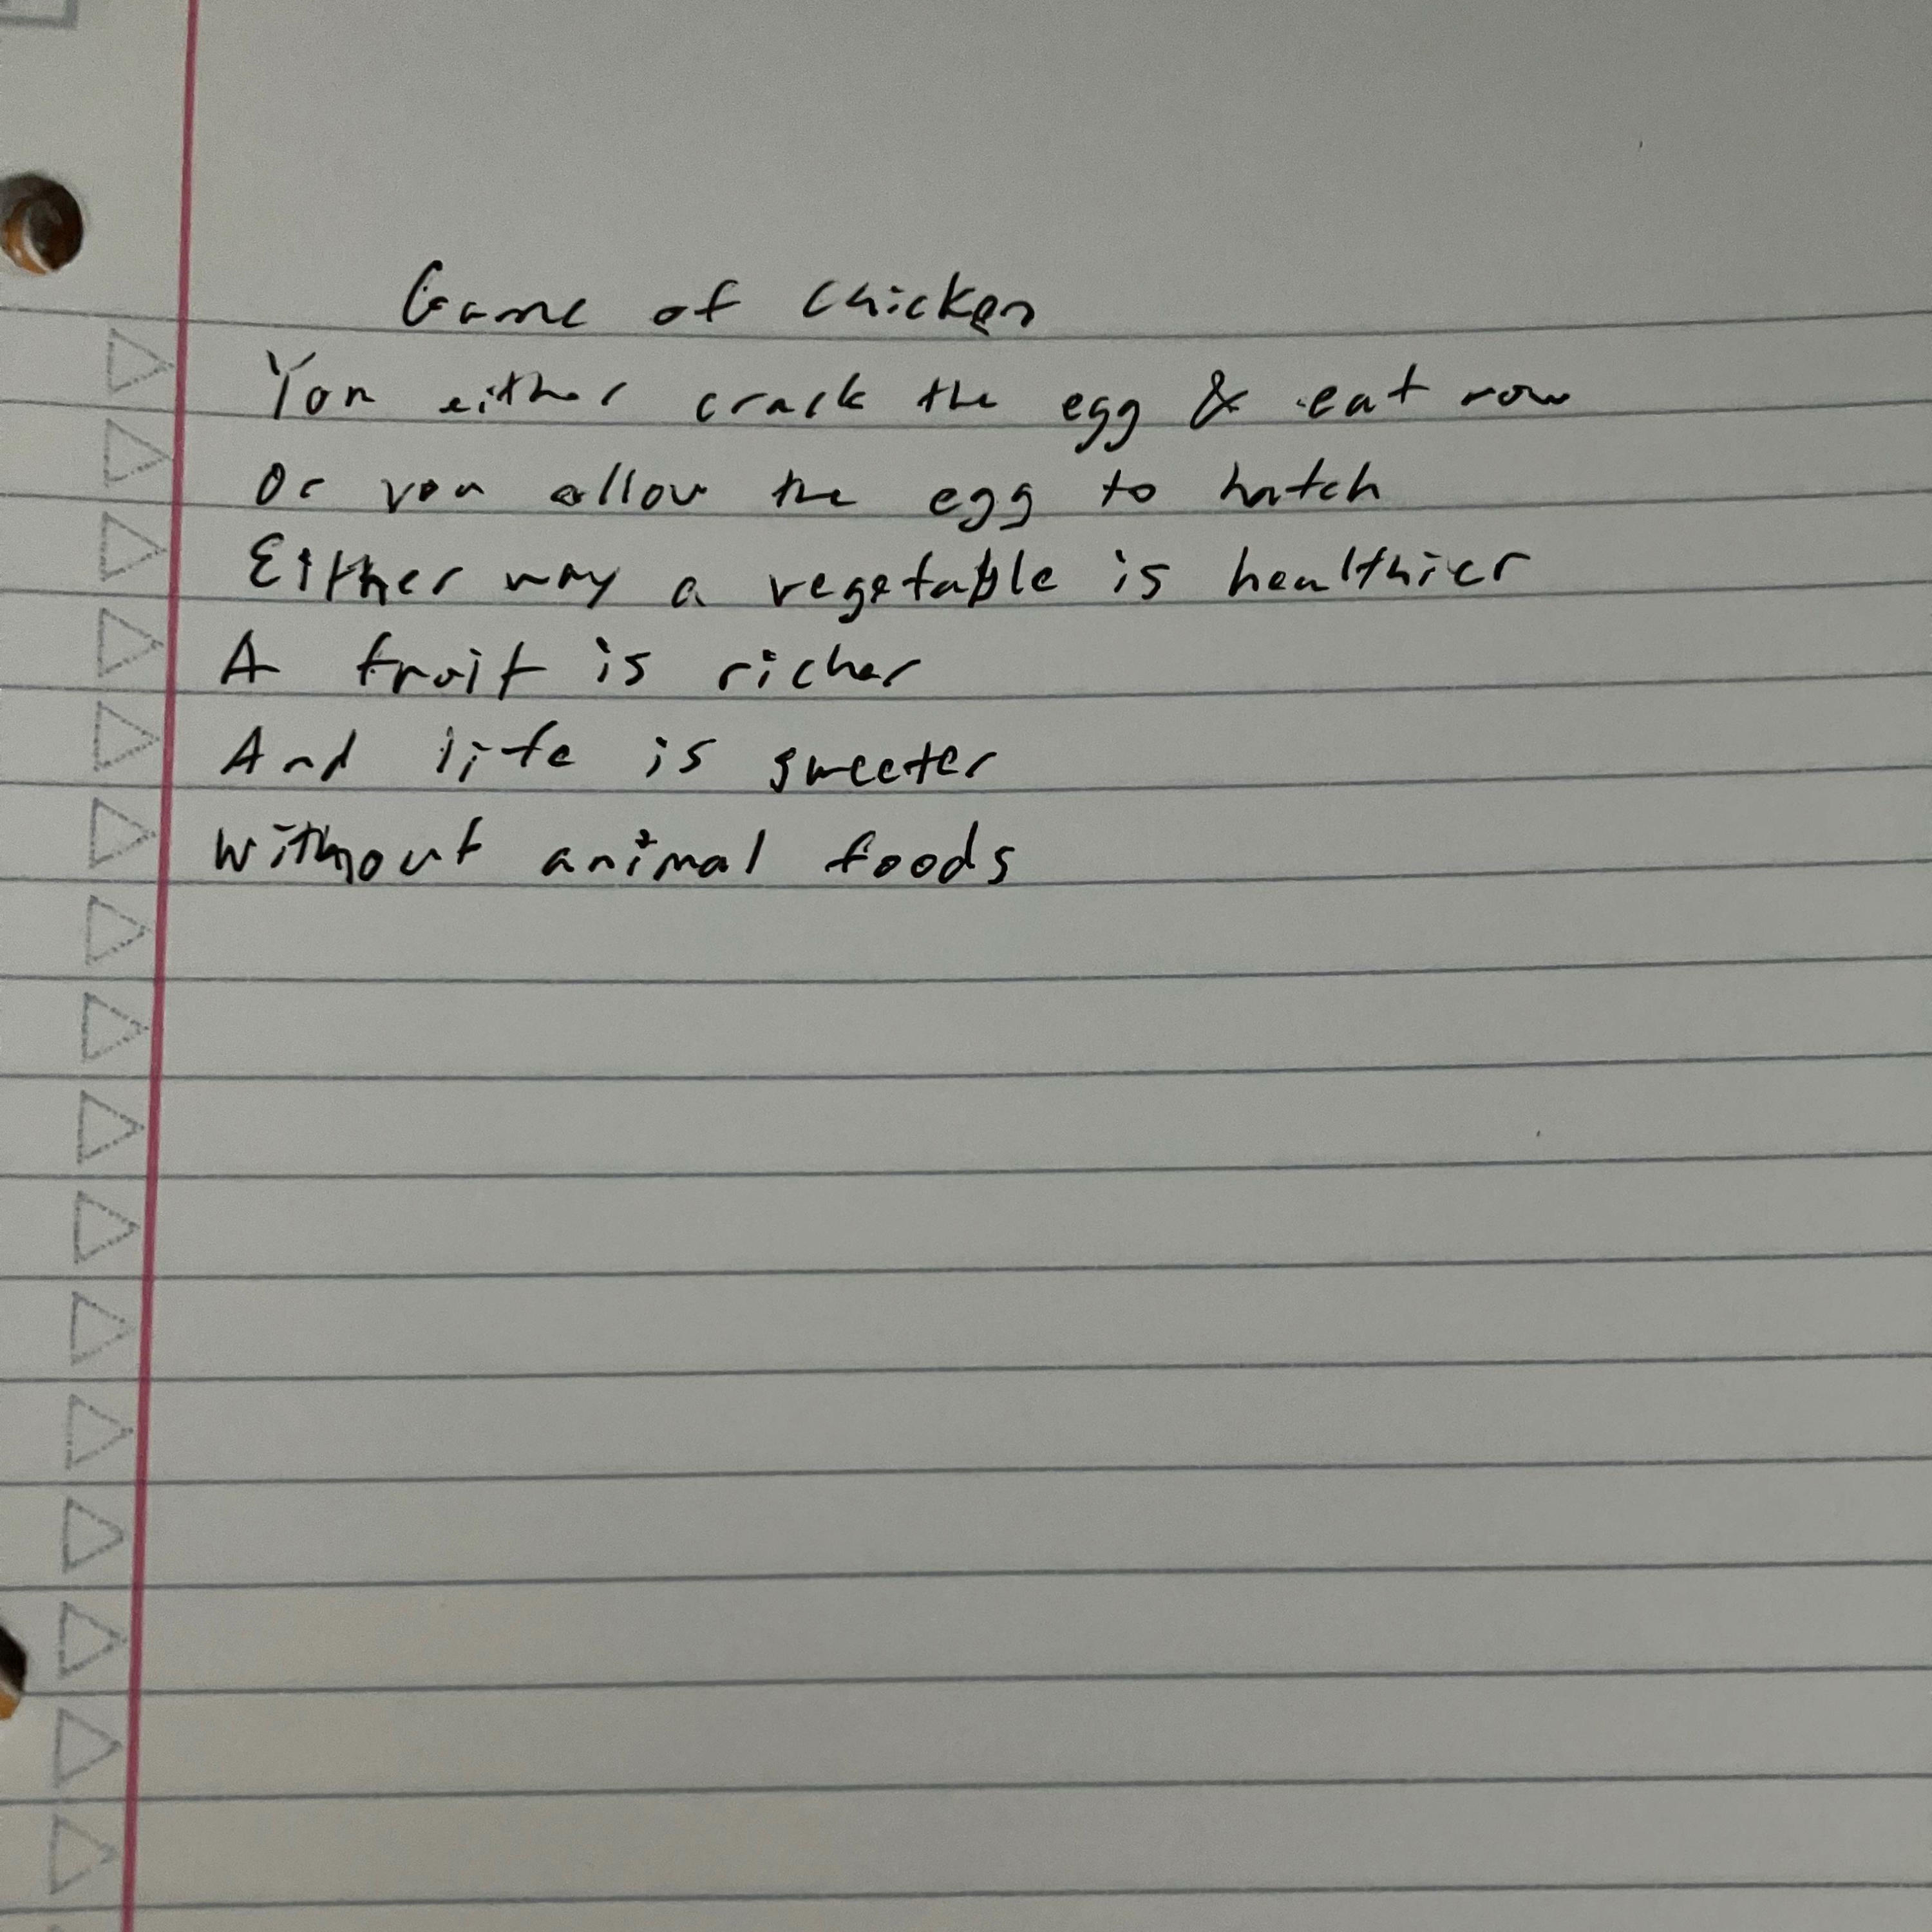 Game of Chicken
You either crack the egg & eat raw
Or you allow the egg to hatch
Either way a vegetable is healthier
A fruit is richer
And life is sweeter
Without animal foods